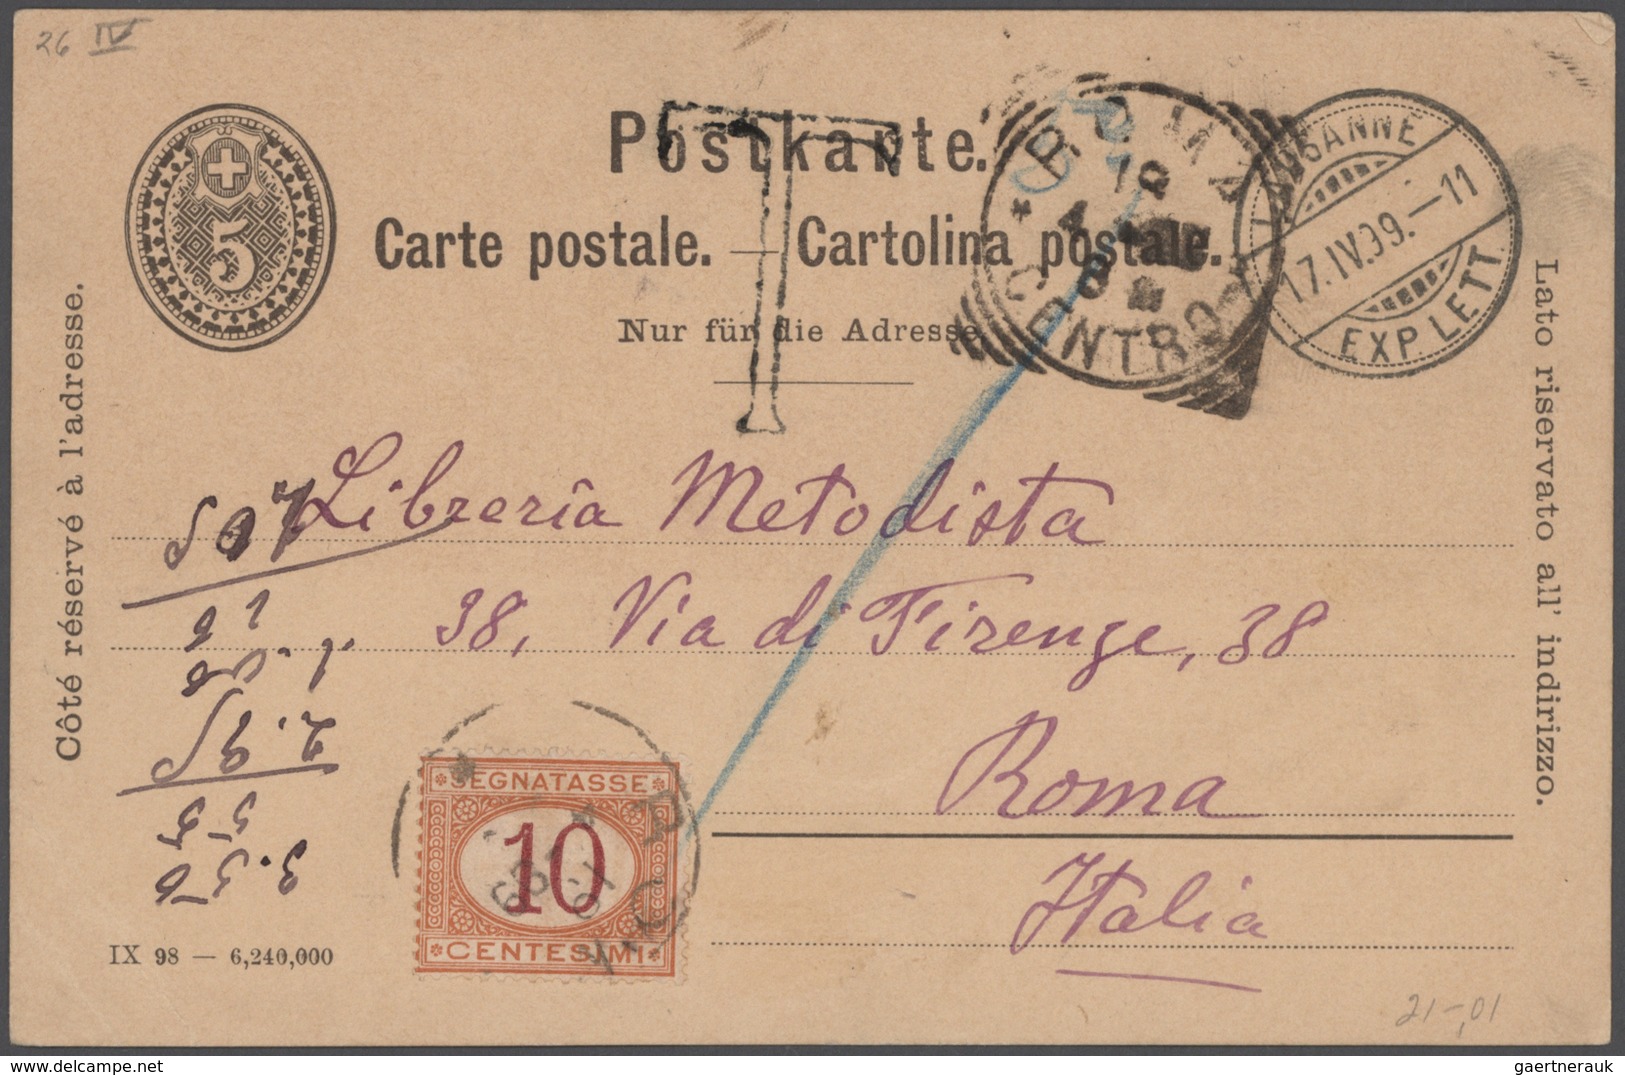 26 IV
5
Postkarte.
Carte postale. — Cartolina postale.
Nur für die Adresse.
T
ROMA
CENTRO
LAUSANNE
17.IV.99.–11
EXP. LETT.
Côté réservé à l'adresse.
Lato riservato all' indirizzo.
Libreria Metodista
38, Via di Firenze, 38
Roma
Italia
SEGNATASSE
10
CENTESIMI
IX 98 — 6,240,000
21-,01
gaertnerauk
delcampe.net